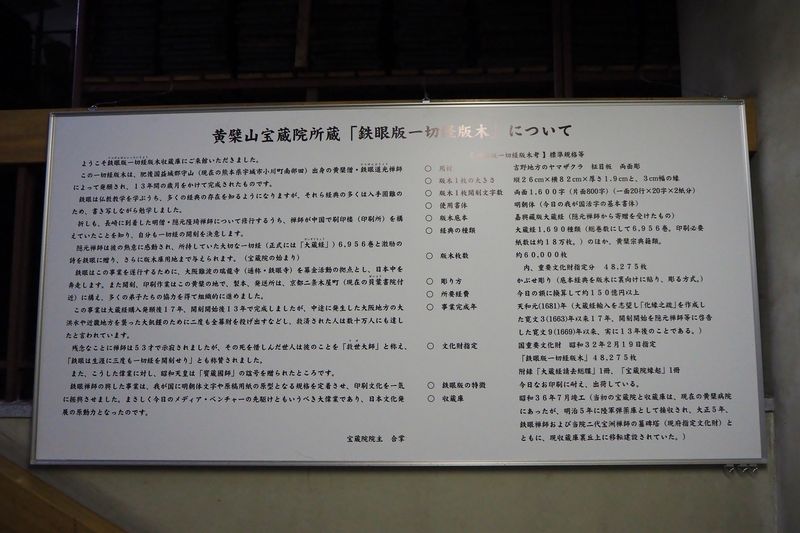 黄檗山宝蔵院所蔵「鉄眼版一切経版木」について
ようこそ鉄眼版一切経版木収蔵庫にご来館いただきました。
この一切経版木は、肥後国益城郡守山（現在の熊本県宇城市小川町南部田）出身の黄檗僧・鉄眼道光禅師
によって発願され、１３年間の歳月をかけて完成されたものです。
鉄眼は仏教教学を学ぶうち、多くの経典の存在を知るようになりますが、それら経典の多くは入手困難の
ため、書き写しながら勉学しました。
折しも、長崎に到着した明僧・隠元隆琦禅師について修行するうち、禅師が中国で刷印楼（印刷所）を構
えていたことを知り、自分も一切経の開刻を決意します。
隠元禅師は彼の熱意に感動され、所持していた大切な一切経（正式には「大蔵経」）6,956巻と激励の
詩を鉄眼に贈り、さらに版木庫用地まで与えられます。（宝蔵院の始まり）
鉄眼はこの事業を遂行するために、大阪難波の瑞龍寺（通称・鉄眼寺）を募金活動の拠点とし、日本中を
奔走します。また開刻、印刷作業はこの黄檗の地で、製本、発送所は、京都二条木屋町（現在の貝葉書院付
近）に構え、多くの弟子たちの協力を得て組織的に進めました。
この事業は大蔵経購入発願後１７年、開刻開始後１３年で完成しましたが、中途に発生した大阪地方の大
洪水や近畿地方を襲った大飢饉のために二度も全募財を投げ出すなどし、救済された人は数十万人にも達し
たと言われています。
残念なことに禅師は５３才で示寂されましたが、その死を惜しんだ世人は彼のことを「救世大師」と称え、
「鉄眼は生涯に三度も一切経を開刻せり」とも称賛されました。
また、こうした偉業に対し、昭和天皇は「宝蔵國師」の諡号を贈られたところです。
鉄眼禅師の興した事業は、我が国に明朝体文字や原稿用紙の原型となる規格を定着させ、印刷文化を一気
に振興させました。まさしく今日のメディア・ベンチャーの先駆けともいうべき大偉業であり、日本文化発
展の原動力となったのです。
宝蔵院院主　合掌
一切経版木考】標準規格等
○　用材　吉野地方のヤマザクラ　柾目板　両面彫
○　版木１枚の大きさ　縦２６cm×横８２cm×厚さ１.９cmと、３cm幅の縁
○　版木１枚開刻文字数　両面１,６００字（片面800字）（一面20行×20字×2紙分）
○　使用書体　明朝体（今日の我が国活字の基本書体）
○　版木底本　嘉興蔵版大蔵経（隠元禅師から寄贈を受けたもの）
○　経典の種類　大蔵経１,６９０種類（総巻数にして６,９５６巻、印刷必要
紙数は約１８万枚。）のほか、黄檗宗典籍類。
○　版木枚数　約６０,０００枚
内、重要文化財指定分　４８,２７５枚
○　彫り方　かぶせ彫り（底本経典を版木に裏向けに貼り、彫る方式。）
○　所要経費　今日の額に換算して約１５０億円以上
○　事業完成年　天和元(1681)年（大蔵経輸入を志望し「化縁之疏」を作成し
た寛文３(1663)年以来１７年、開刻開始を隠元禅師等に啓告
した寛文９(1669)年以来、実に１３年後のことである。）
○　文化財指定　国重要文化財　昭和３２年２月１９日指定
「鉄眼版一切経版木」４８,２７５枚
附録「大蔵経請去総牒」１冊、「宝蔵院縁起」１冊
○　鉄眼版の特徴　今日なお印刷に耐え、出荷している。
○　収蔵庫　昭和３６年７月竣工（当初の宝蔵院と収蔵庫は、現在の黄檗病院
にあったが、明治５年に陸軍弾薬庫として接収され、大正５年、
鉄眼禅師および当院二代宝洲禅師の墓碑塔（現府指定文化財）と
ともに、現収蔵庫裏丘上に移転建設されていた。）